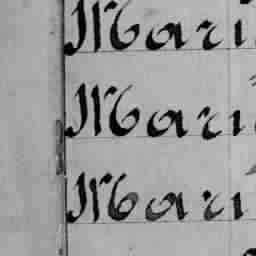 Mari
Mari
Mari